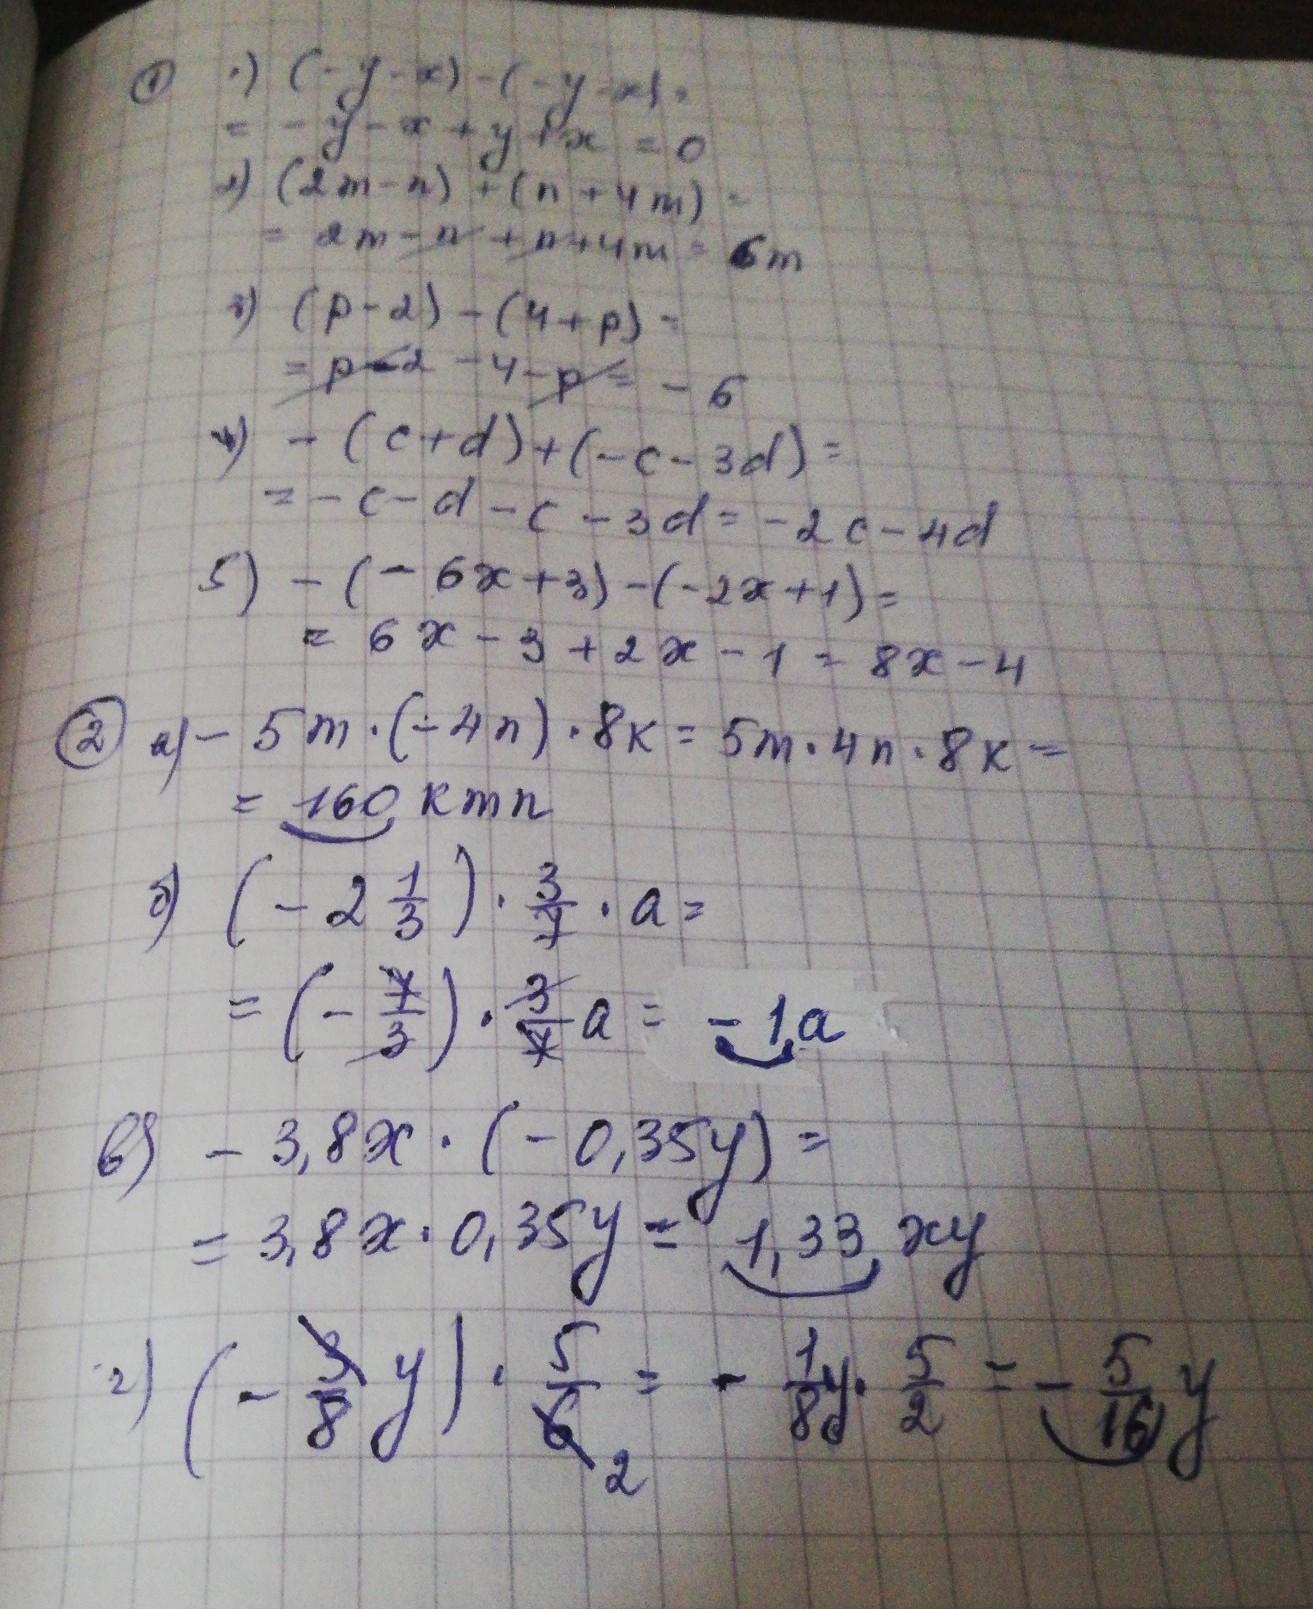 ① 1) (-y-x)-(-y-x)=
= -y-x+y+x = 0
2) (2m-n)+(n+4m)=
= 2m-n+n+4m = 6m
3) (p-2)-(4+p)=
= p-2-4-p = -6
4) -(c+d)+(-c-3d)=
= -c-d-c-3d = -2c-4d
5) -(-6x+3)-(-2x+1)=
= 6x-3+2x-1 = 8x-4
② а) -5m·(-4n)·8к = 5m·4n·8к =
= 160 кmn
б) (-2 1/3)·3/7·a =
= (-7/3)·3/7 a = -1a
в) -3,8x·(-0,35y) =
= 3,8x·0,35y = 1,33 xy
г) (-3/8 y)·5/6 = -1/8 y·5/2 = -5/16 y
2